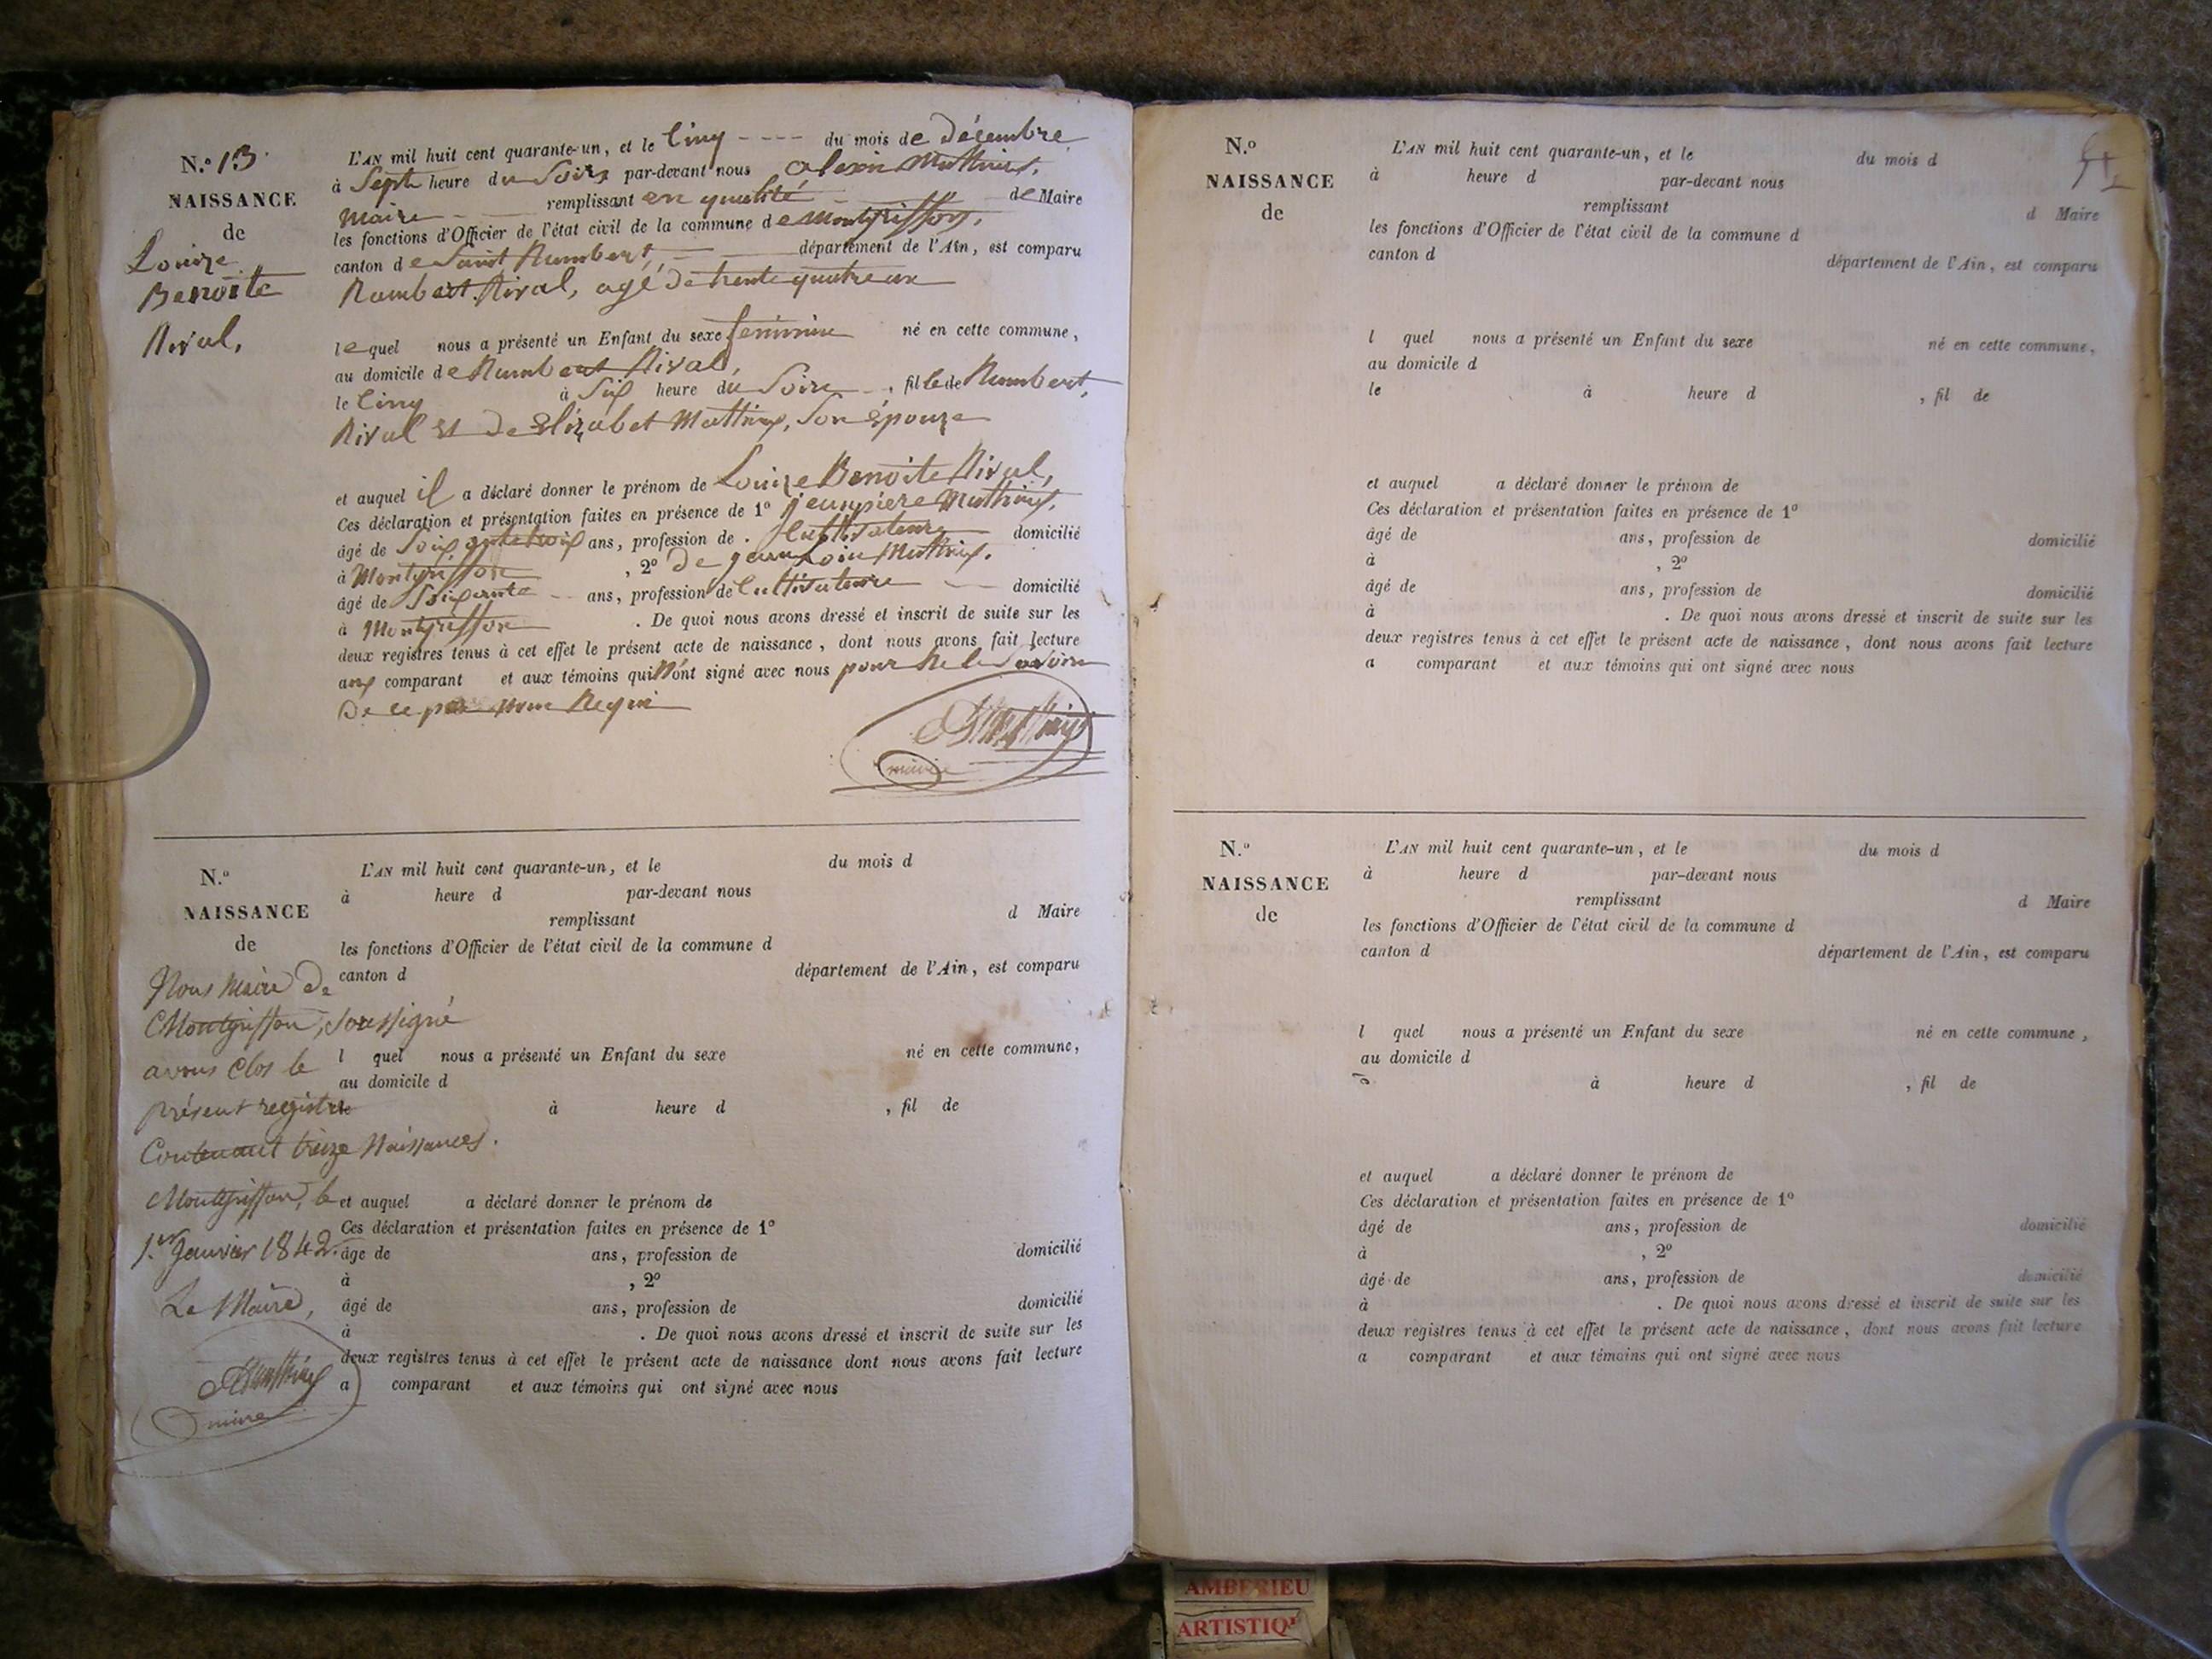 N.º 13
NAISSANCE
de
Louize
Benoite
Rival,
L'AN mil huit cent quarante-un, et le Cinq ---- du mois de décembre
à Septe heure du Soire par-devant nous alexin Mathieux,
maire remplissant en qualité de Maire
les fonctions d'Officier de l'état civil de la commune de Montgriffon,
canton de Saint Rambert, département de l'Ain, est comparu
Rambert Rival, agé de trente quatre an
lequel nous a présenté un Enfant du sexe feminin né en cette commune,
au domicile de Rambert Rival,
le Cinq à Six heure du Soire, fille de Rambert,
Rival et de Elizabet Mathieux, Son épouze
et auquel il a déclaré donner le prénom de Louize Benoite Rival,
Ces déclaration et présentation faites en présence de 1º jeanpiere Mathieux,
âgé de Soixantetroix ans, profession de . Cultivateure domicilié
à Montgriffon , 2º De jean Loui Mathieux,
âgé de Soixante ans, profession de Cultivateure domicilié
à Montgriffon . De quoi nous avons dressé et inscrit de suite sur les
deux registres tenus à cet effet le présent acte de naissance, dont nous avons fait lecture
aux comparant et aux témoins qui n'ont signé avec nous pour ne le savoir
De ce par nous Requi
Mathieux
maire
N.º
NAISSANCE
de
L'AN mil huit cent quarante-un, et le du mois d
à heure d par-devant nous
remplissant d Maire
les fonctions d'Officier de l'état civil de la commune d
canton d département de l'Ain, est comparu
l quel nous a présenté un Enfant du sexe né en cette commune,
au domicile d
à heure d , fil de
et auquel a déclaré donner le prénom de
Ces déclaration et présentation faites en présence de 1º
âge de ans, profession de domicilié
à , 2º
âgé de ans, profession de domicilié
à . De quoi nous avons dressé et inscrit de suite sur les
deux registres tenus à cet effet le présent acte de naissance dont nous avons fait lecture
a comparant et aux témoins qui ont signé avec nous
Nous Maire de
Montgriffon, soussigné
avons Clos le
présent registre
Contenant treize Naissances.
Montgriffon, le
1.er Janvier 1842.
Le Maire,
Mathieux
maire
N.º
NAISSANCE
de
L'AN mil huit cent quarante-un, et le du mois d
à heure d par-devant nous
remplissant d Maire
les fonctions d'Officier de l'état civil de la commune d
canton d département de l'Ain, est comparu
l quel nous a présenté un Enfant du sexe né en cette commune,
au domicile d
le à heure d , fil de
et auquel a déclaré donner le prénom de
Ces déclaration et présentation faites en présence de 1º
âgé de ans, profession de domicilié
à , 2º
âgé de ans, profession de domicilié
à . De quoi nous avons dressé et inscrit de suite sur les
deux registres tenus à cet effet le présent acte de naissance, dont nous avons fait lecture
a comparant et aux témoins qui ont signé avec nous
N.º
NAISSANCE
de
L'AN mil huit cent quarante-un, et le du mois d
à heure d par-devant nous
remplissant d Maire
les fonctions d'Officier de l'état civil de la commune d
canton d département de l'Ain, est comparu
l quel nous a présenté un Enfant du sexe né en cette commune,
au domicile d
à heure d , fil de
et auquel a déclaré donner le prénom de
Ces déclaration et présentation faites en présence de 1º
âgé de ans, profession de domicilié
à , 2º
âgé de ans, profession de domicilié
à . De quoi nous avons dressé et inscrit de suite sur les
deux registres tenus à cet effet le présent acte de naissance, dont nous avons fait lecture
a comparant et aux témoins qui ont signé avec nous
AMBERIEU
ARTISTIQ